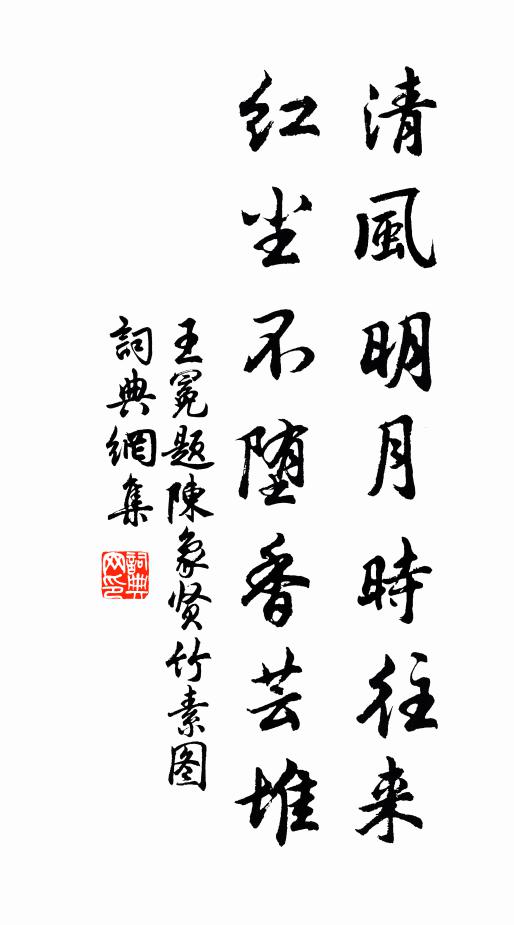 清風明月時往来
红尘不堕香芸堆
王冕题陳象贤竹素图
詞典網集
詞典网印